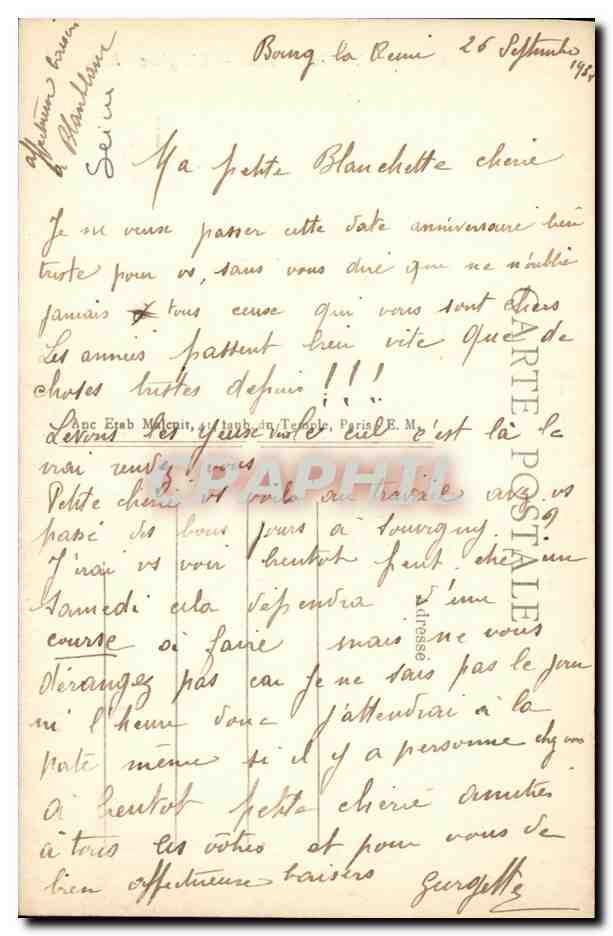 affectueux baisers
à Blanblanc
Seine
Bourg la Reine 26 Septembre
Ma petite Blanchette chérie
Je ne veux passer cette date anniversaire bien
triste pour vs, sans vous dire que ne n'oublie
jamais tous ceux qui vous sont chers
Les années passent bien vite que de
choses tristes depuis !!!
Anc Etab Malcuit, faub. du Temple, Paris. E. M.
Levons les yeux vers le ciel c'est là le
vrai rendez vous
Petite chérie vs voilà au travail avez vs
passé des bons jours à Souvigny ?
J'irai vs voir bientot peut être un
Samedi cela dépendra d'une
course à faire mais ne vous
dérangez pas car je ne sais pas le jour
ni l'heure donc j'attendrai à la
porte même si il y a personne chez vous
à bientot petite chérie amitiés
à tous les vôtres et pour vous de
bien affectueux baisers Georgette
CARTE POSTALE
Adresse
CPAPHIL